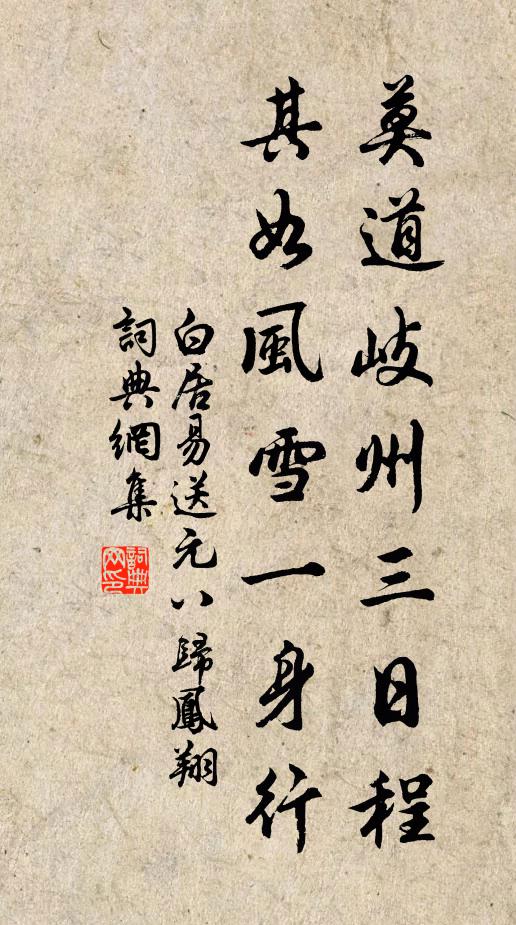 莫道岐州三日程
其如風雪一身行
白居易送元八歸鳳翔
詞典網集
詞典网印